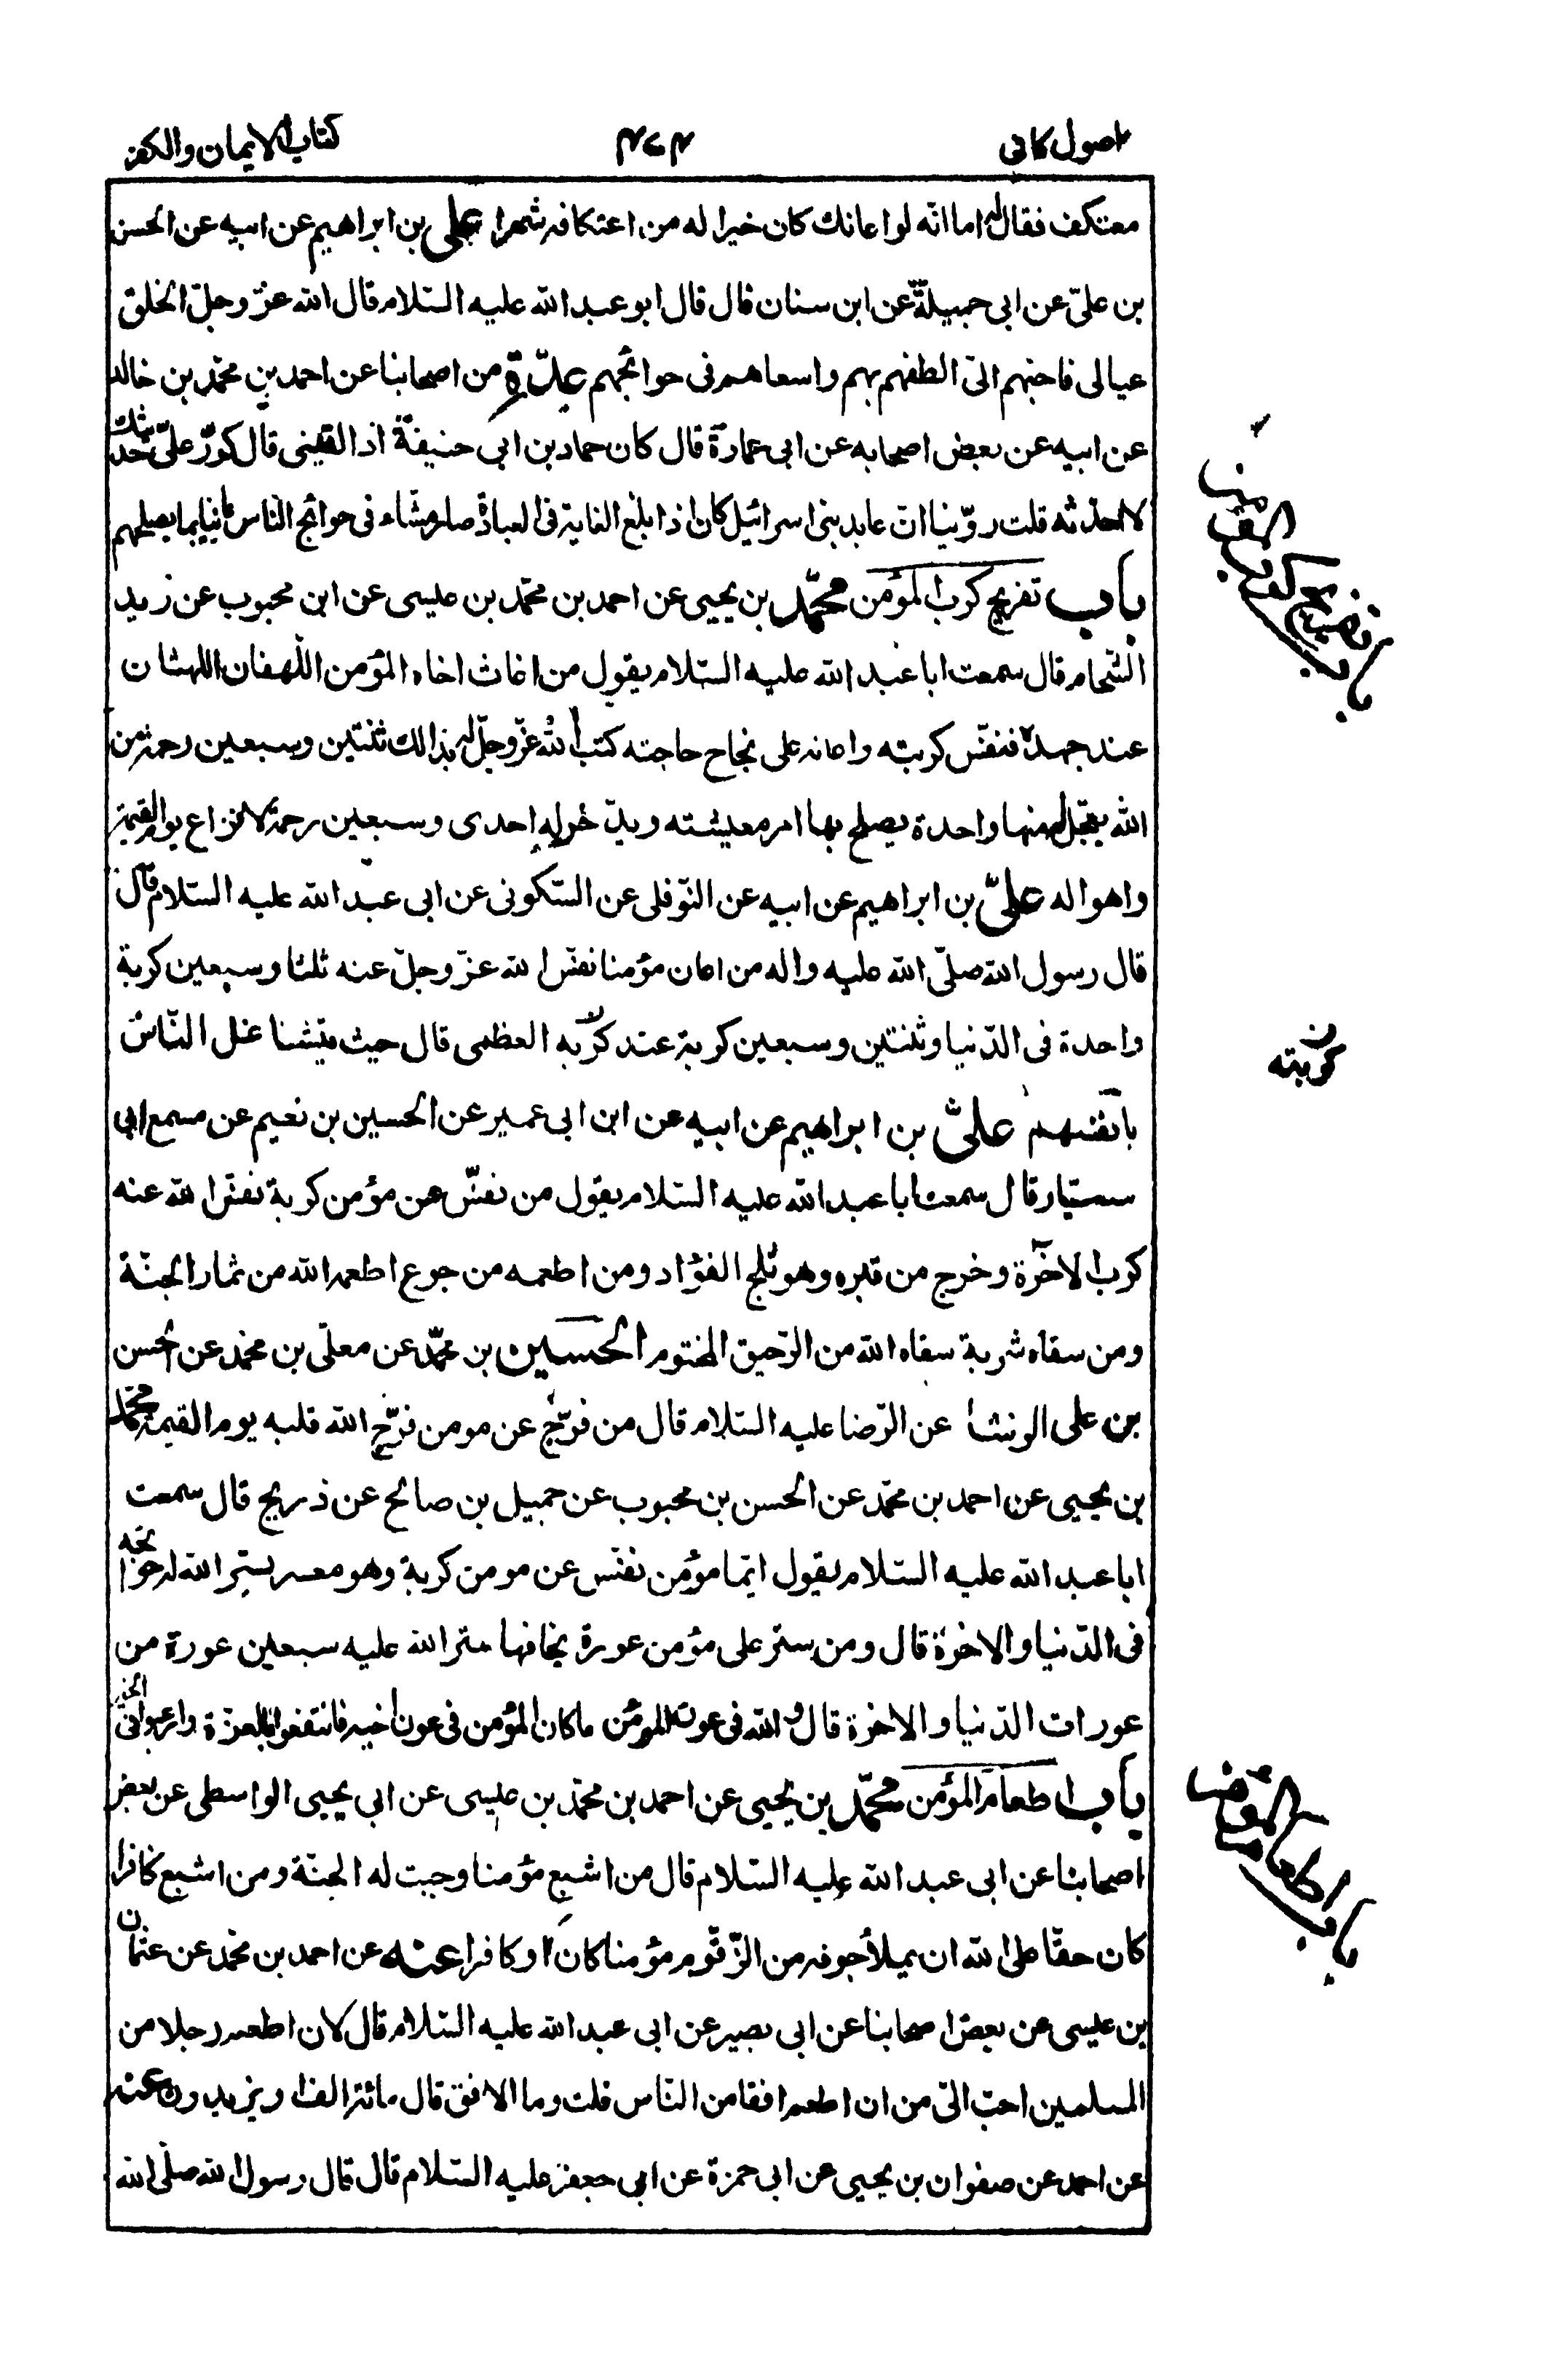 اصول كافى
٤٧٤
كتاب الايمان والكفر
معتكف فقال له اما انّه لو اعانك كان خيرا له من اعتكافه شهرا علىّ بن ابراهيم عن ابيه عن الحسن
بن علىّ عن ابى جميلة عن ابن سنان قال قال ابو عبد الله عليه السّلام قال الله عزّ وجلّ الخلق
عيالى فاحبّهم الىّ الطفهم بهم واسعاهم فى حوائجهم عدّة من اصحابنا عن احمد بن محمّد بن خالد
عن ابيه عن بعض اصحابه عن ابى عمارة قال كان حماد بن ابى حنيفة اذا لقينى قال كرّر علىّ حديثك
فاحدّثه قلت روّينا انّ عابد بنى اسرائيل كان اذا بلغ الغاية فى العبادة صار مشّاء فى حوائج النّاس عانيا بما يصلحهم
باب تفريج كرب المؤمن محمّد بن يحيى عن احمد بن محمّد بن عيسى عن ابن محبوب عن زيد
الشّحام قال سمعت ابا عبد الله عليه السّلام يقول من اغاث اخاه المؤمن اللّهفان اللهثان
عند جهده فنفّس كربته واعانه على نجاح حاجته كتب الله عزّ وجلّ له بذالك ثنتين وسبعين رحمة من
الله يعجّل له منها واحدة يصلح بها امر معيشته ويدّخر له احدى وسبعين رحمة لافزاع يوم القيمة
واهواله علىّ بن ابراهيم عن ابيه عن النّوفلى عن السّكونى عن ابى عبد الله عليه السّلام قال
قال رسول الله صلّى الله عليه واله من اعان مؤمنا نفّس الله عزّ وجلّ عنه ثلثا وسبعين كربة
واحدة فى الدّنيا وثنتين وسبعين كربة عند كربه العظمى قال حيث يتشاغل النّاس
بانفسهم علىّ بن ابراهيم عن ابيه عن ابن ابى عمير عن الحسين بن نعيم عن مسمع ابى
سيّار قال سمعت ابا عبد الله عليه السّلام يقول من نفّس عن مؤمن كربة نفّس الله عنه
كرب الاخرة وخرج من قبره وهو ثلج الفؤاد ومن اطعمه من جوع اطعمه الله من ثمار الجنّة
ومن سقاه شربة سقاه الله من الرّحيق المختوم الحسين بن محمّد عن معلّى بن محمد عن الحسن
بن على الوشا عن الرّضا عليه السّلام قال من فرّج عن مومن فرّج الله قلبه يوم القيمة محمّد
بن يحيى عن احمد بن محمّد عن الحسن بن محبوب عن جميل بن صالح عن ذريح قال سمعت
ابا عبد الله عليه السّلام يقول ايّما مؤمن نفّس عن مومن كربة وهو معسر يسّر الله له حوائجه
فى الدّنيا والاخرة قال ومن ستر على مؤمن عورة يخافها ستر الله عليه سبعين عورة من
عورات الدّنيا والاخرة قال والله فى عون المؤمن ما كان المؤمن فى عون اخيه فانتفعوا بالعزة وارغبوا فى الخير
باب اطعام المؤمن محمّد بن يحيى عن احمد بن محمّد بن عيسى عن ابى يحيى الواسطى عن بعض
اصحابنا عن ابى عبد الله عليه السّلام قال من اشبع مؤمنا وجبت له الجنّة ومن اشبع كافرا
كان حقّا على الله ان يملأ جوفه من الزّقّوم مؤمنا كان او كافرا عنه عن احمد بن محمّد عن عثمان
بن عيسى عن بعض اصحابنا عن ابى بصير عن ابى عبد الله عليه السّلام قال لان اطعم رجلا من
المسلمين احبّ الىّ من ان اطعم افقا من النّاس قلت وما الافق قال مائة الف او يزيدون عنه
عن احمد عن صفوان بن يحيى عن ابى حمزة عن ابى جعفر عليه السّلام قال قال رسول الله صلّى الله
باب تفريج كرب المؤمن
كربته
باب اطعام المؤمن